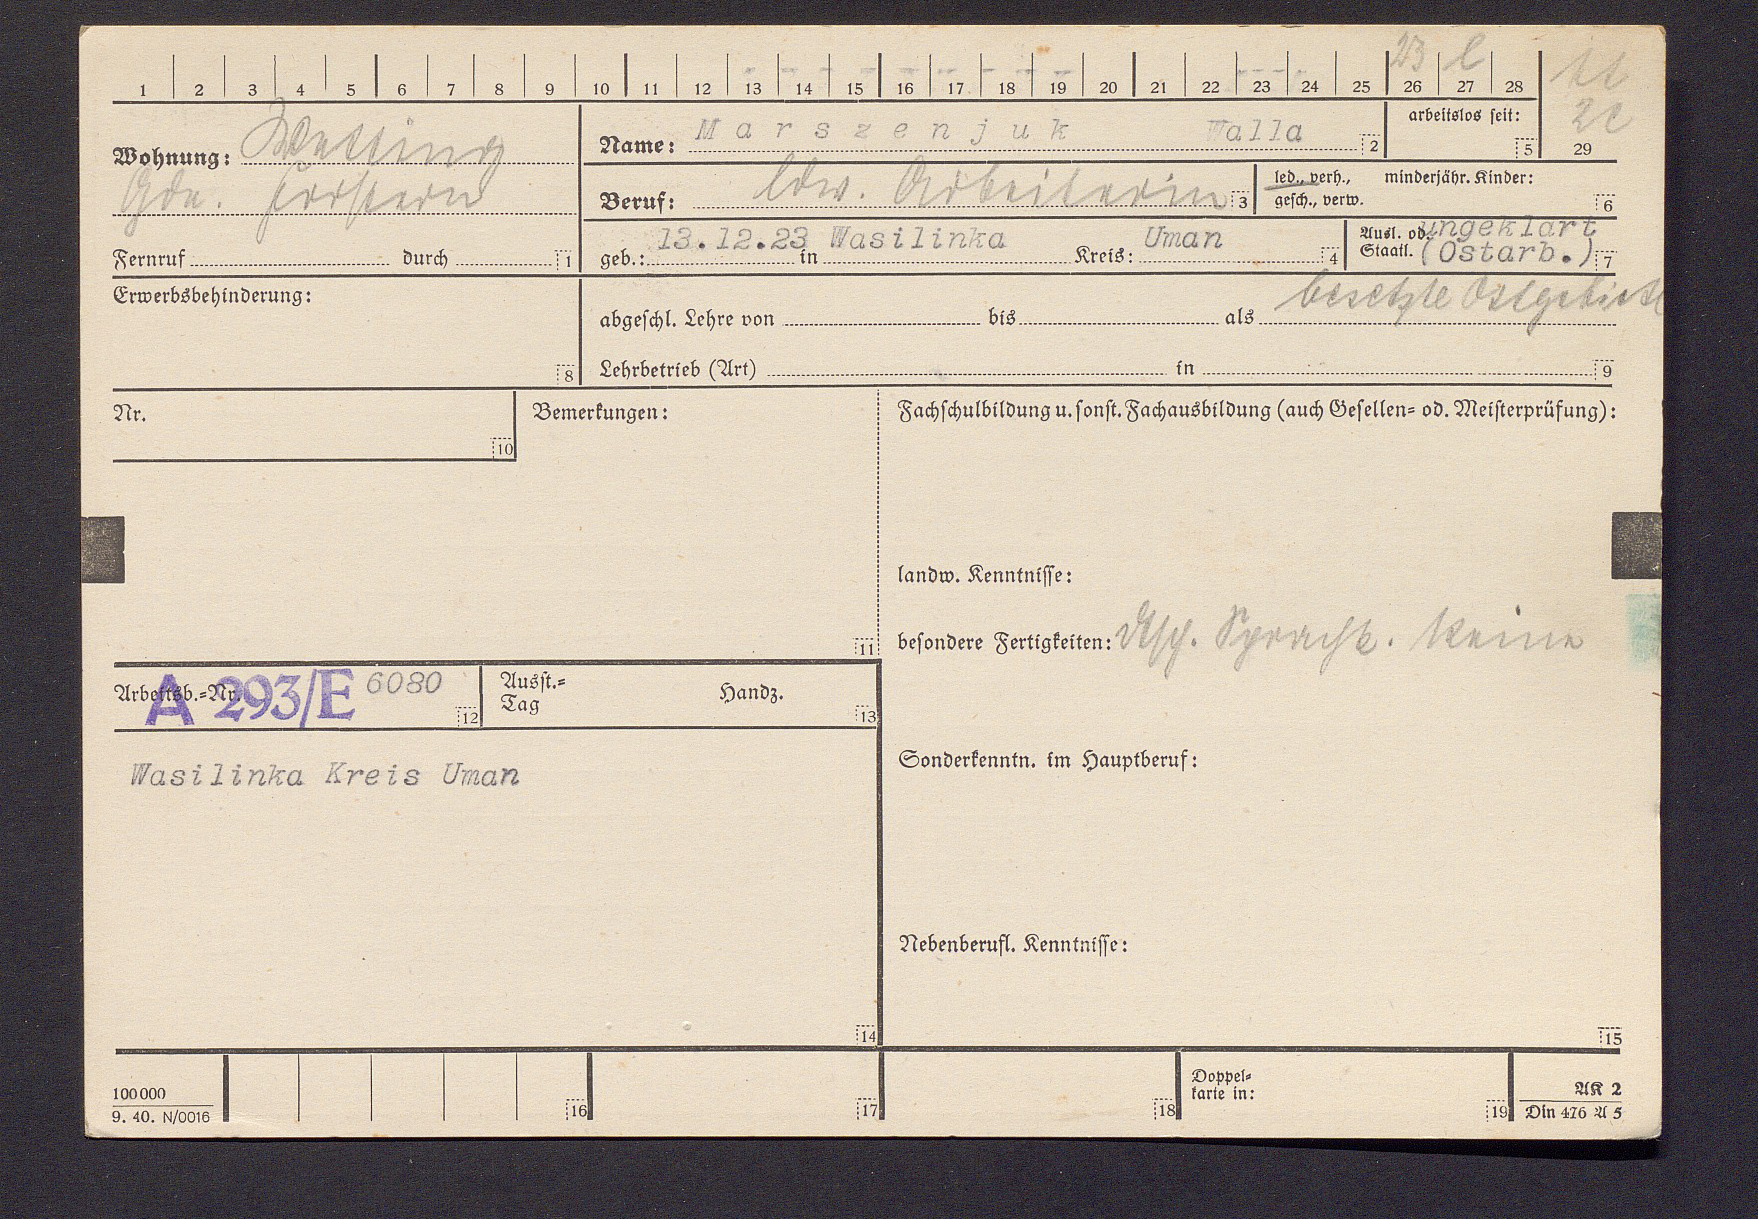 1 2 3 4 5 6 7 8 9 10 11 12 13 14 15 16 17 18 19 20 21 22 23 24 25 26 27 28
23 l
2c
29
Wohnung:
Gde. Forstern
Fernruf durch 1
Name: Marszenjuk Walla 2
arbeitslos seit: 5
Beruf: ldw. Arbeiterin 3
led., verh., minderjähr. Kinder:
gesch., verw. 6
geb.: 13.12.23 in Wasilinka Kreis: Uman 4
Ausl. od. ungeklärt
Staatl. (Ostarb.) 7
besetzte Ostgebiete
Erwerbsbehinderung:
8
abgeschl. Lehre von bis als
Lehrbetrieb (Art) in 9
Nr.
10
Bemerkungen:
11
Fachschulbildung u. sonst. Fachausbildung (auch Gesellen- od. Meisterprüfung):
landw. Kenntnisse:
besondere Fertigkeiten: dtsch. Sprachk. keine
Arbeitsb.-Nr. A 293/E 6080 12
Ausst.-
Tag Handz. 13
Wasilinka Kreis Uman
14
Sonderkenntn. im Hauptberuf:
Nebenberufl. Kenntnisse:
15
100000
9. 40. N/0016
16 17 18
Doppel-
karte in: 19
AK 2
Din 476 A 5